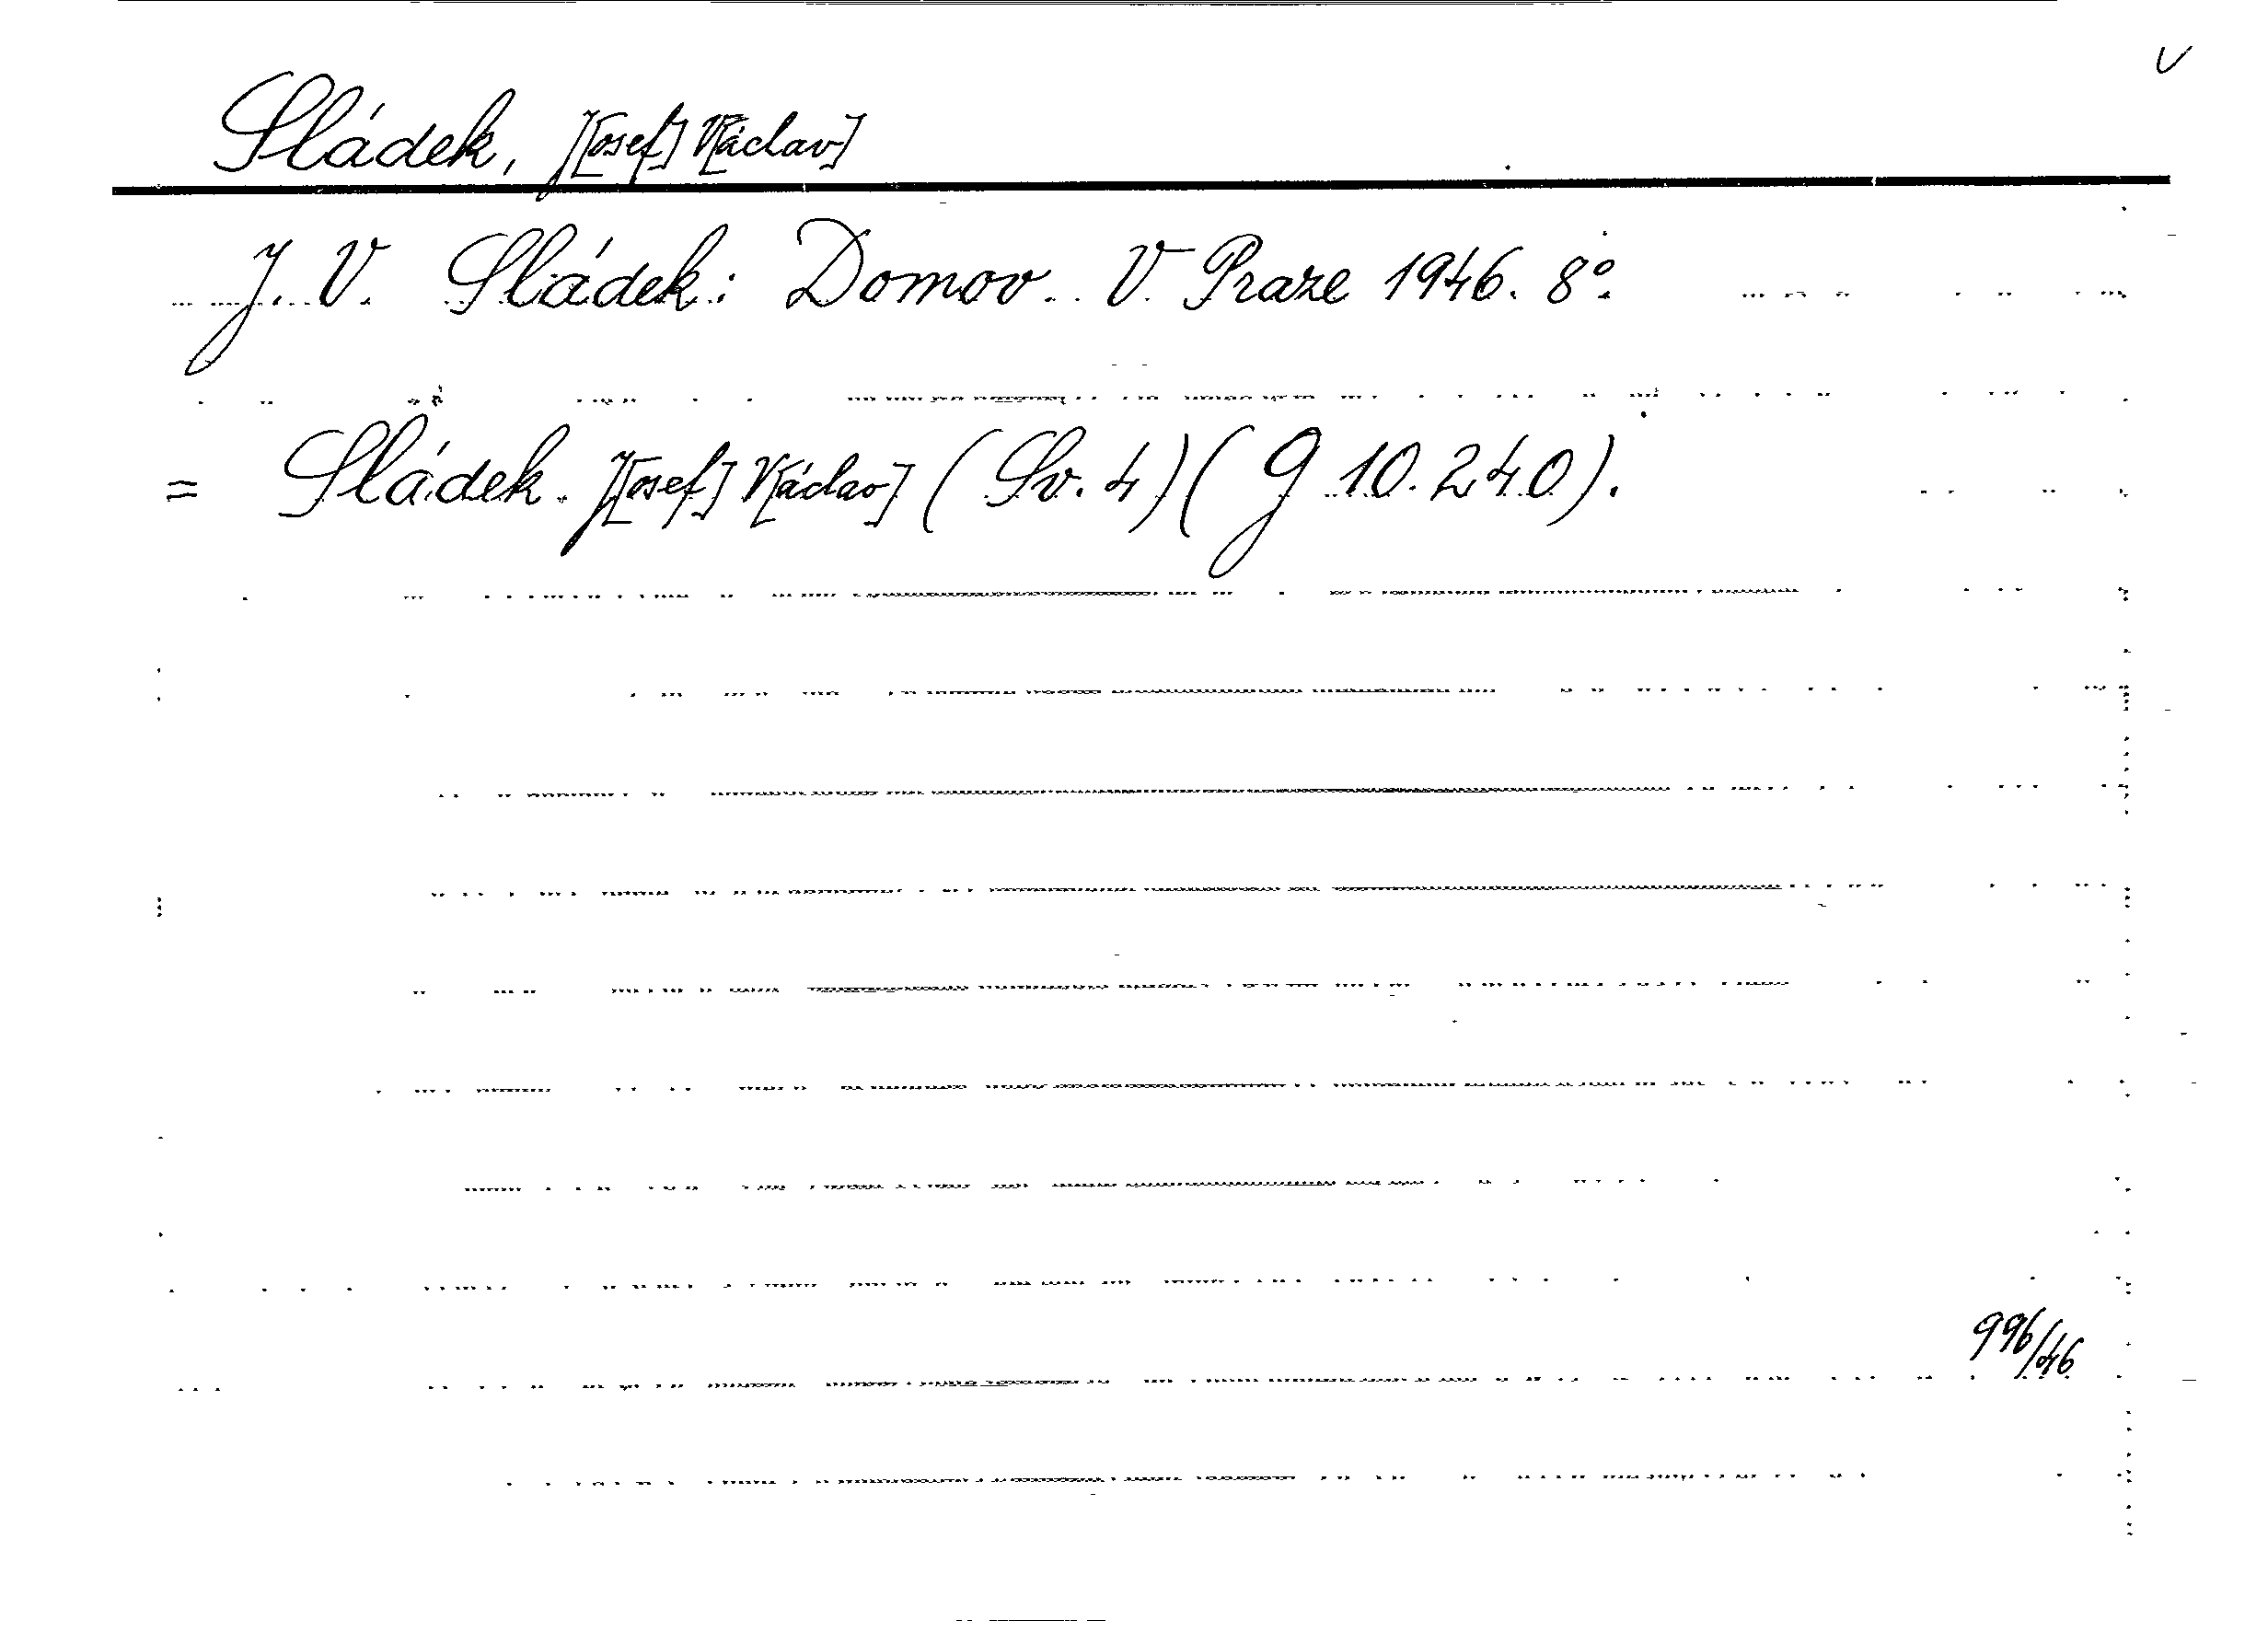 Sládek, J[osef] V[áclav]
J. V. Sládek: Domov. V Praze 1946. 8°.
= Sládek. J[osef] V[áclav] (Sv. 4) (g 10.240).
996/46